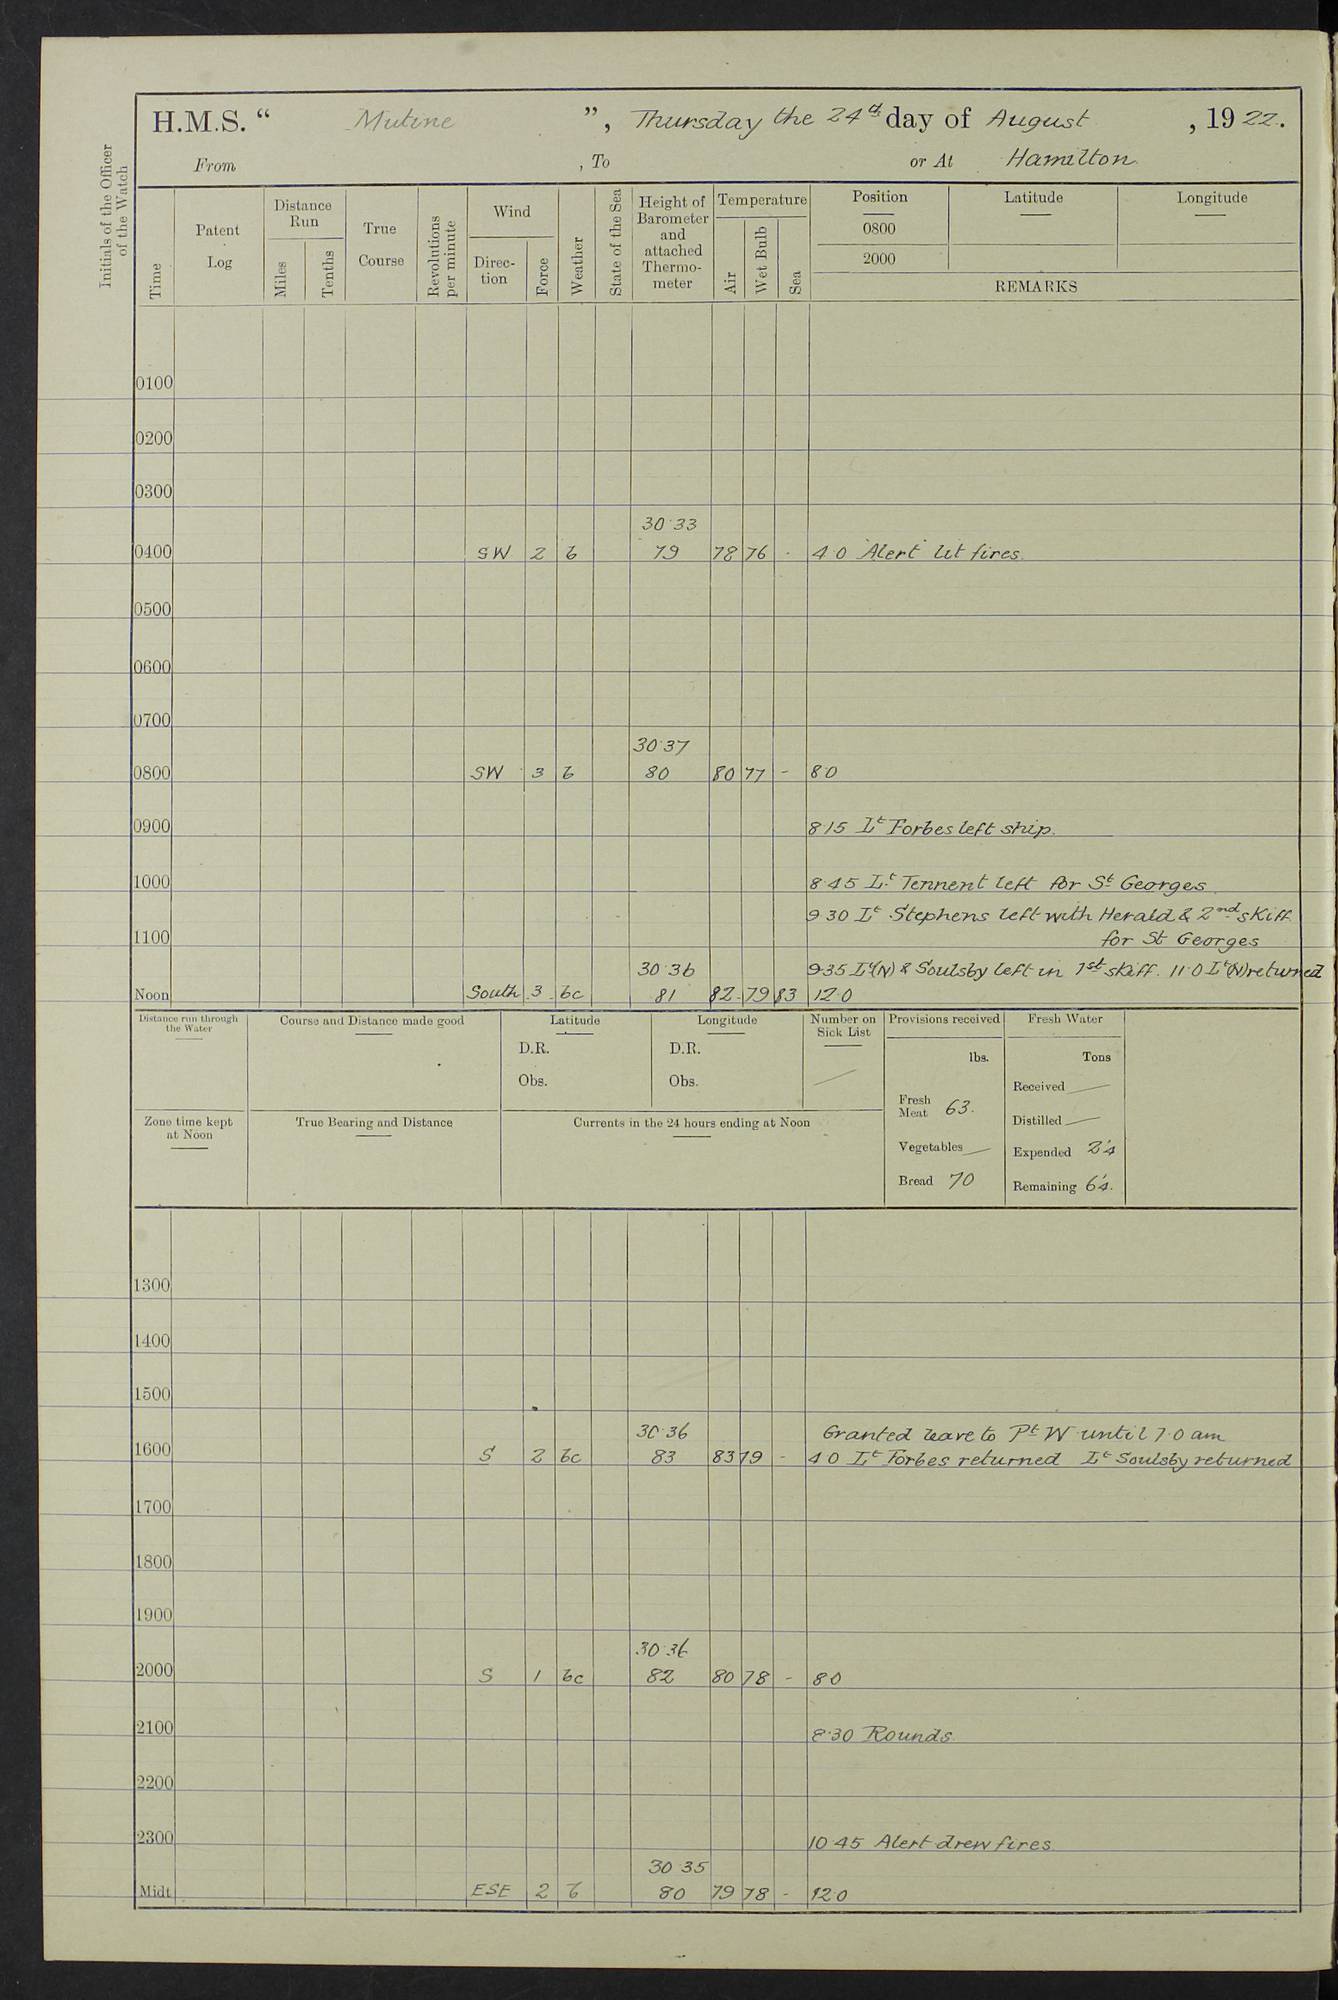 H.M.S. “ Mutine ”, Thursday the 24th day of August , 1922.
From , To or At Hamilton
Initials of the Officer of the Watch
Time
Patent Log
Distance Run
Miles
Tenths
True Course
Revolutions per minute
Wind
Direc-tion
Force
Weather
State of the Sea
Height of Barometer and attached Thermo-meter
Temperature
Air
Wet Bulb
Sea
Position Latitude Longitude
0800
2000
REMARKS
0100
0200
0300
30.33
0400 SW 2 b 79 78 76 - 4.0 "Alert" lit fires.
0500
0600
0700
30.37
0800 SW 3 b 80 80 77 - 8.0
0900 8.15 Lt Forbes left ship.
1000 8.45 Lt Tennent left for St Georges.
9.30 Lt Stephens left with Herald & 2nd skiff
1100 for St Georges
30.36 9.35 Lt (N) & Soulsby left in 1st skiff. 11.0 Lt (N) returned
Noon South 3 bc 81 82 79 83 12.0
Distance run through the Water
Course and Distance made good
Latitude
D.R.
Obs.
Longitude
D.R.
Obs.
Number on Sick List
Provisions received
lbs.
Fresh Meat 63.
Vegetables —
Bread 70
Fresh Water
Tons
Received —
Distilled —
Expended 2.4
Remaining 64.
Zone time kept at Noon
True Bearing and Distance
Currents in the 24 hours ending at Noon
1300
1400
1500
30.36 Granted leave to Pt W until 7.0 am
1600 S 2 bc 83 83 79 - 4.0 Lt Forbes returned Lt Soulsby returned
1700
1800
1900
30.36
2000 S 1 bc 82 80 78 - 8.0
2100 8.30 Rounds.
2200
2300 10.45 Alert drew fires.
30.35
Midt ESE 2 b 80 79 78 - 12.0